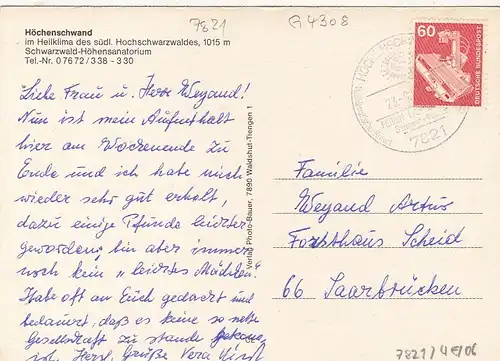 7821
G 4308
Höchenschwand
im Heilklima des südl. Hochschwarzwaldes, 1015 m
Schwarzwald-Höhensanatorium
Tel.-Nr. 07672/338 - 330
60
DEUTSCHE BUNDESPOST
7821
Verlag Photo-Bauer, 7890 Waldshut-Tiengen 1
Liebe Frau u. Herr Weyand!
Nun ist mein Aufenthalt
hier am Wochenende zu
Ende und ich habe mich
wieder sehr gut erholt,
dazu einige Pfunde leichter
geworden, bin aber immer
noch kein „leichtes Mädchen"!
Habe oft an Euch gedacht und
bedauert, daß es keine so nette
Gesellschaft zu stande gekom
ist. Herzl. Grüße Vera
Familie
Weyand Artur
Forsthaus Scheid
66 Saarbrücken